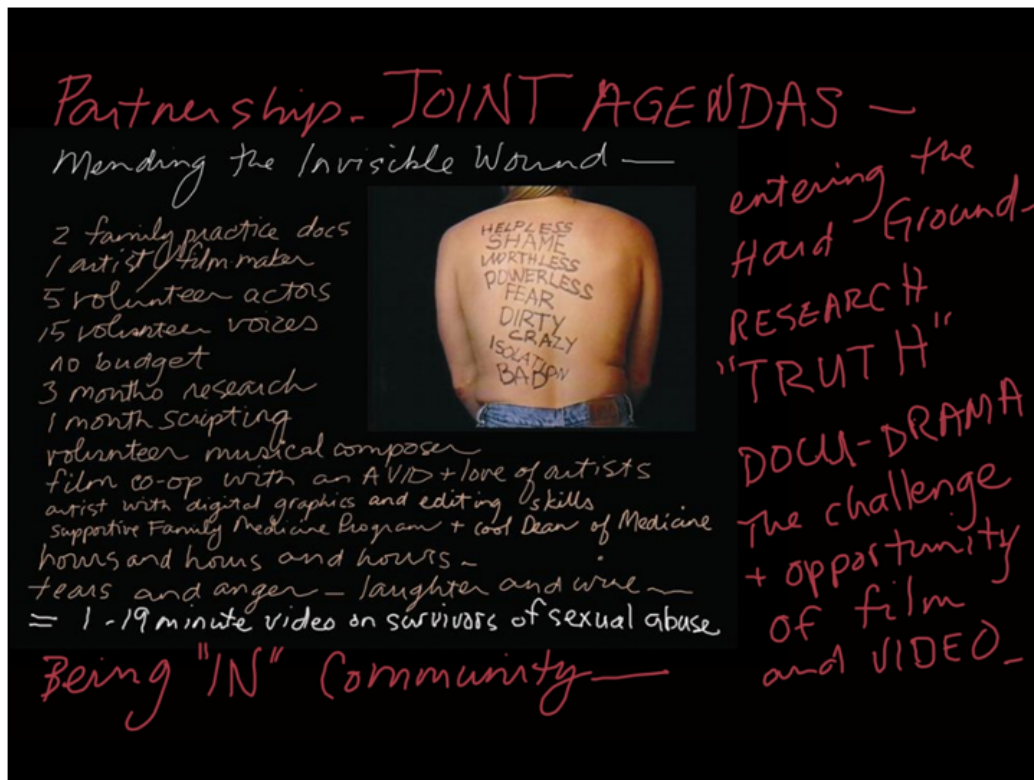 Partnership - JOINT AGENDAS —
Mending the Invisible Wound —
2 family practice docs
1 artist/film maker
5 volunteer actors
15 volunteer voices
no budget
3 months research
1 month scripting
volunteer musical composer
film co-op with an AVID + love of artists
artist with digital graphics and editing skills
supportive Family Medicine Program + cool Dean of Medicine
hours and hours and hours -
tears and anger - laughter and wine —
= 1 - 19 minute video on survivors of sexual abuse
HELPLESS
SHAME
WORTHLESS
POWERLESS
FEAR
DIRTY
CRAZY
ISOLATION
BAD
entering the
Hard Ground -
RESEARCH
"TRUTH"
DOCU-DRAMA
The challenge
+ opportunity
of film
and VIDEO -
Being "IN" Community —